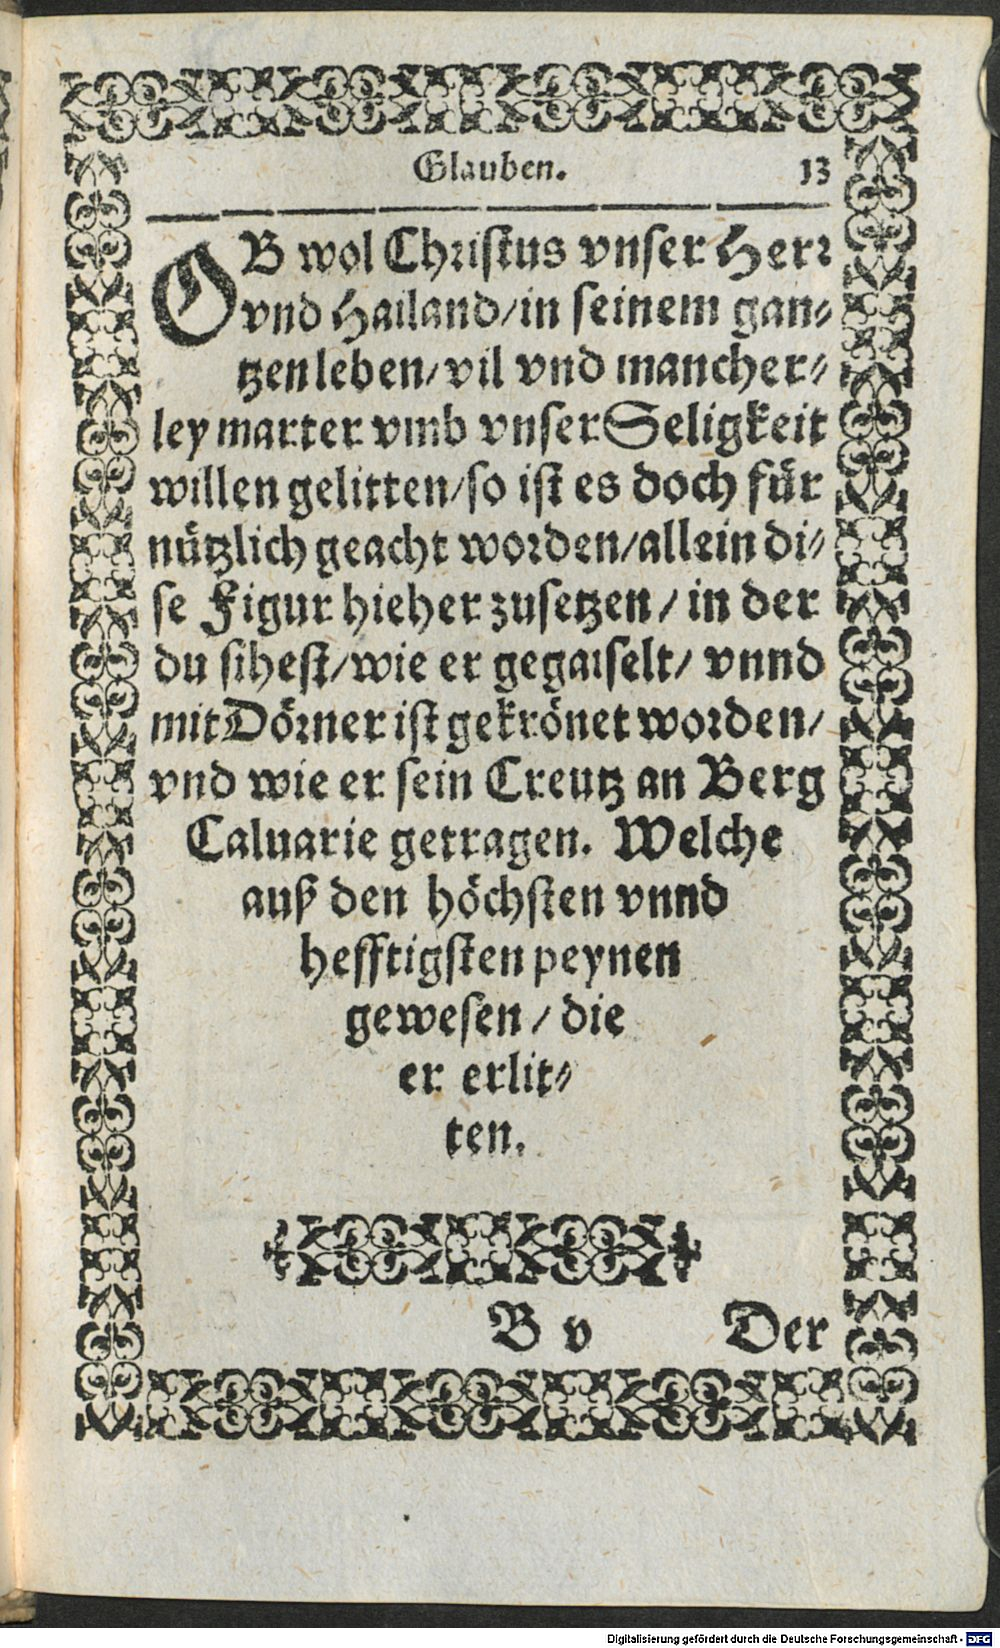 Glauben. 13
OB wol Christus vnser Herr
vnd Hailand/in seinem gan-
tzen leben/vil vnd mancher-
ley marter vmb vnser Seligkeit
willen gelitten/so ist es doch für
nützlich geacht worden/allein di-
se Figur hieher zusetzen/ in der
du sihest/wie er gegaiselt/ vnnd
mit Dörner ist gekrönet worden/
vnd wie er sein Creutz an Berg
Caluarie getragen. Welche
auß den höchsten vnnd
hefftigsten peynen
gewesen / die
er erlit-
ten.
B v Der
Digitalisierung gefördert durch die Deutsche Forschungsgemeinschaft - DFG